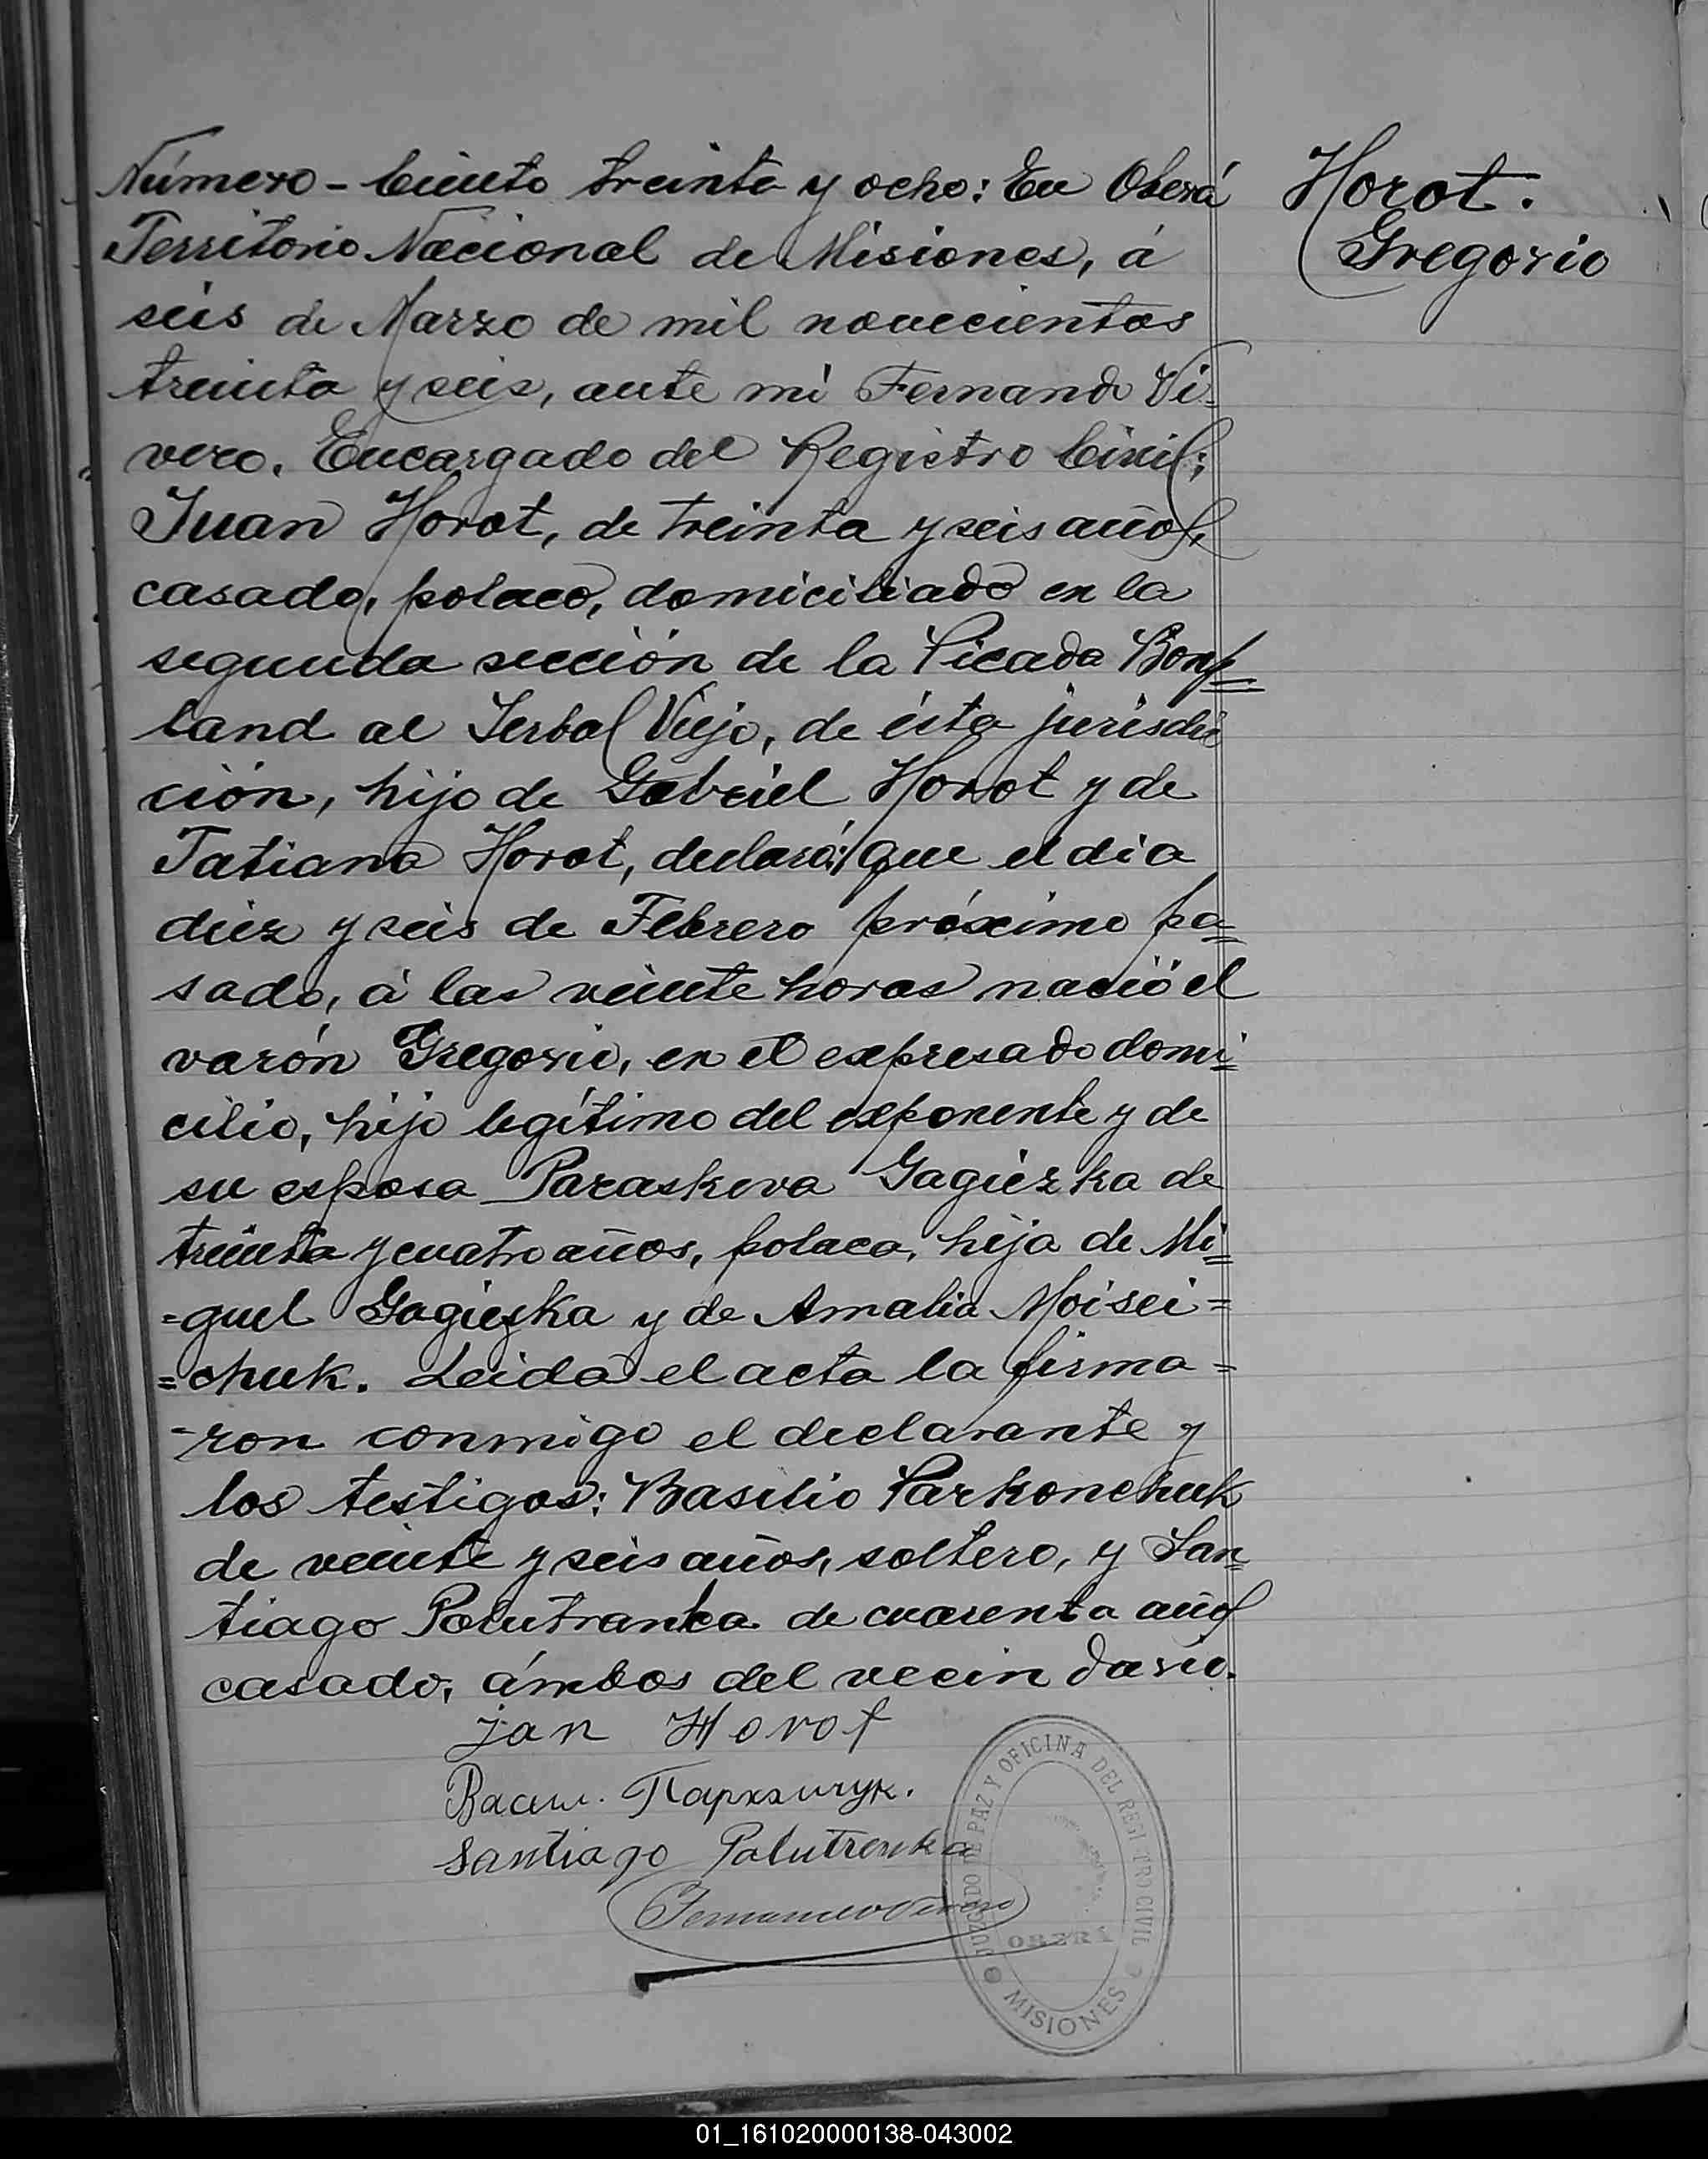 Número - Ciento treinta y ocho: En Oberá
Territorio Nacional de Misiones, á
seis de Marzo de mil novecientos
treinta y seis, ante mi Fernando Vi-
vero, Encargado del Registro Civil;
Juan Horot, de treinta y seis años,
casado, polaco, domiciliado en la
segunda sección de la Picada Bonp=
land al Yerbal Viejo, de ésta jurisdic
ción, hijo de Gabriel Horot y de
Tatiana Horot, declaró: que el dia
diez y seis de Febrero próximo pa=
sado, á las veinte horas nació el
varón Gregorio, en el expresado domi=
cilio, hijo legítimo del exponente y de
su esposa Paraskeva Gagiezka de
treinta y cuatro años, polaca, hija de Mi=
=guel Gagiezka y de Amalia Moisei=
=chuk. Leida el acta la firma=
-ron conmigo el declarante y
los testigos: Basilio Parkonchuk
de veinte y seis años, soltero, y San=
tiago Polutranka de cuarenta años
casado, ámbos del vecindario.
Horot.
Gregorio
Jan Horot
Santiago Polutrenka
Fernando Vivero
JUZGADO DE PAZ Y OFICINA DEL REGISTRO CIVIL
OBERÁ
MISIONES
01_161020000138-043002